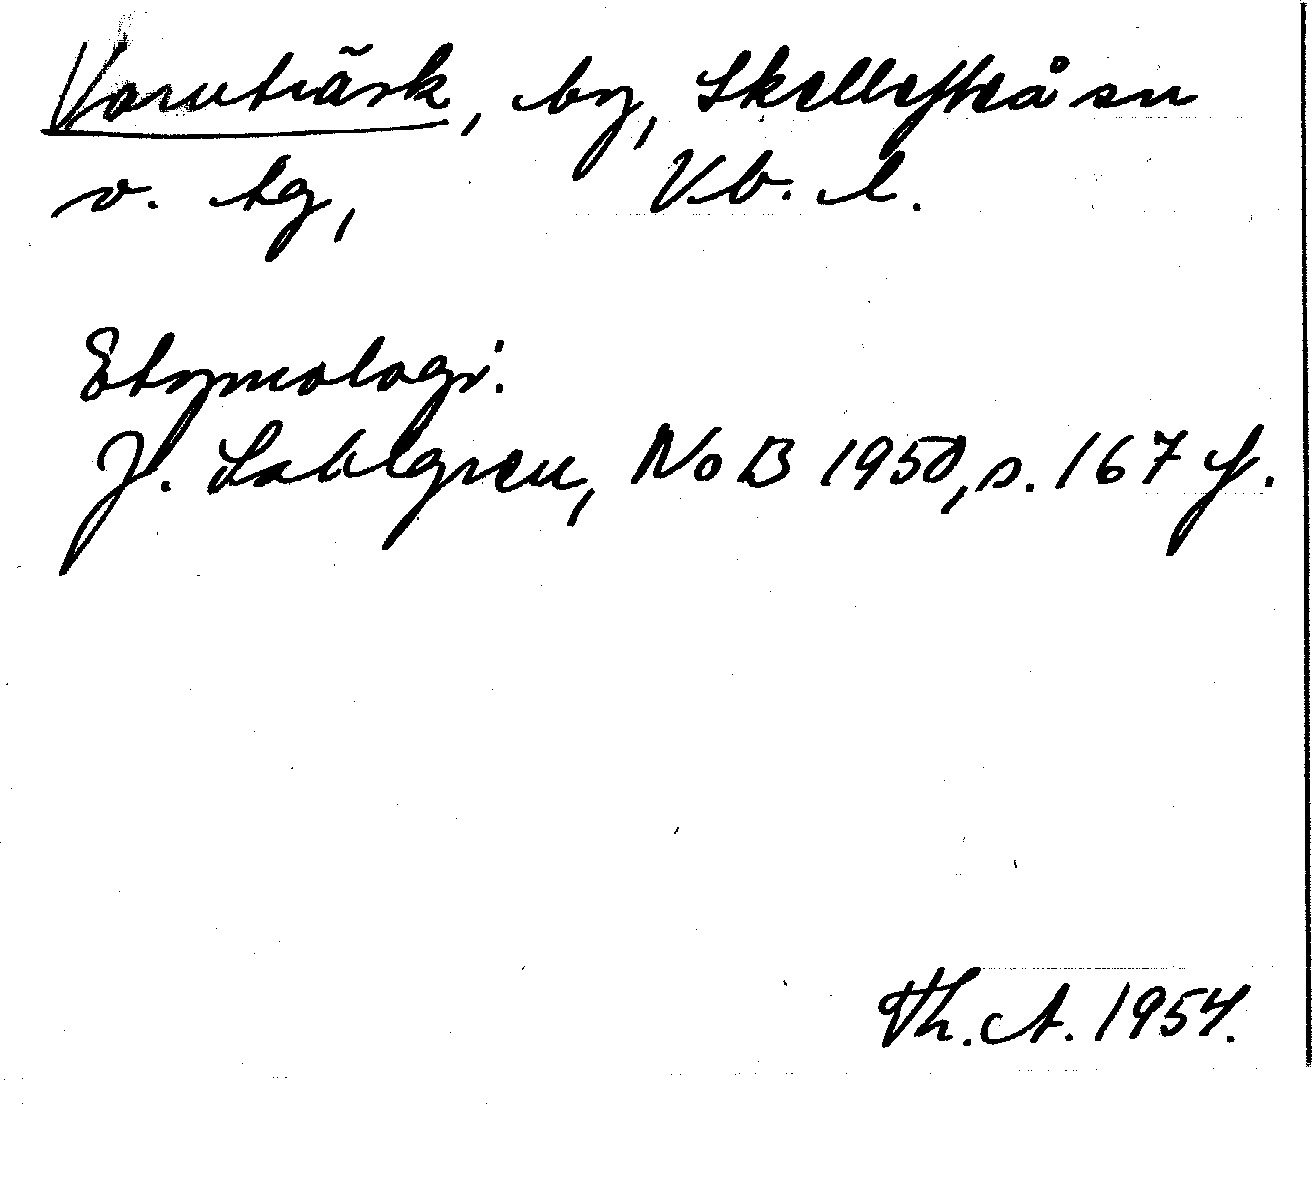 Varuträsk, by, Skellefteå sn
v. tg, Vb. l.
Etymologi:
J. Sahlgren, NoB 1950, s. 167 f.
Th. A. 1954.